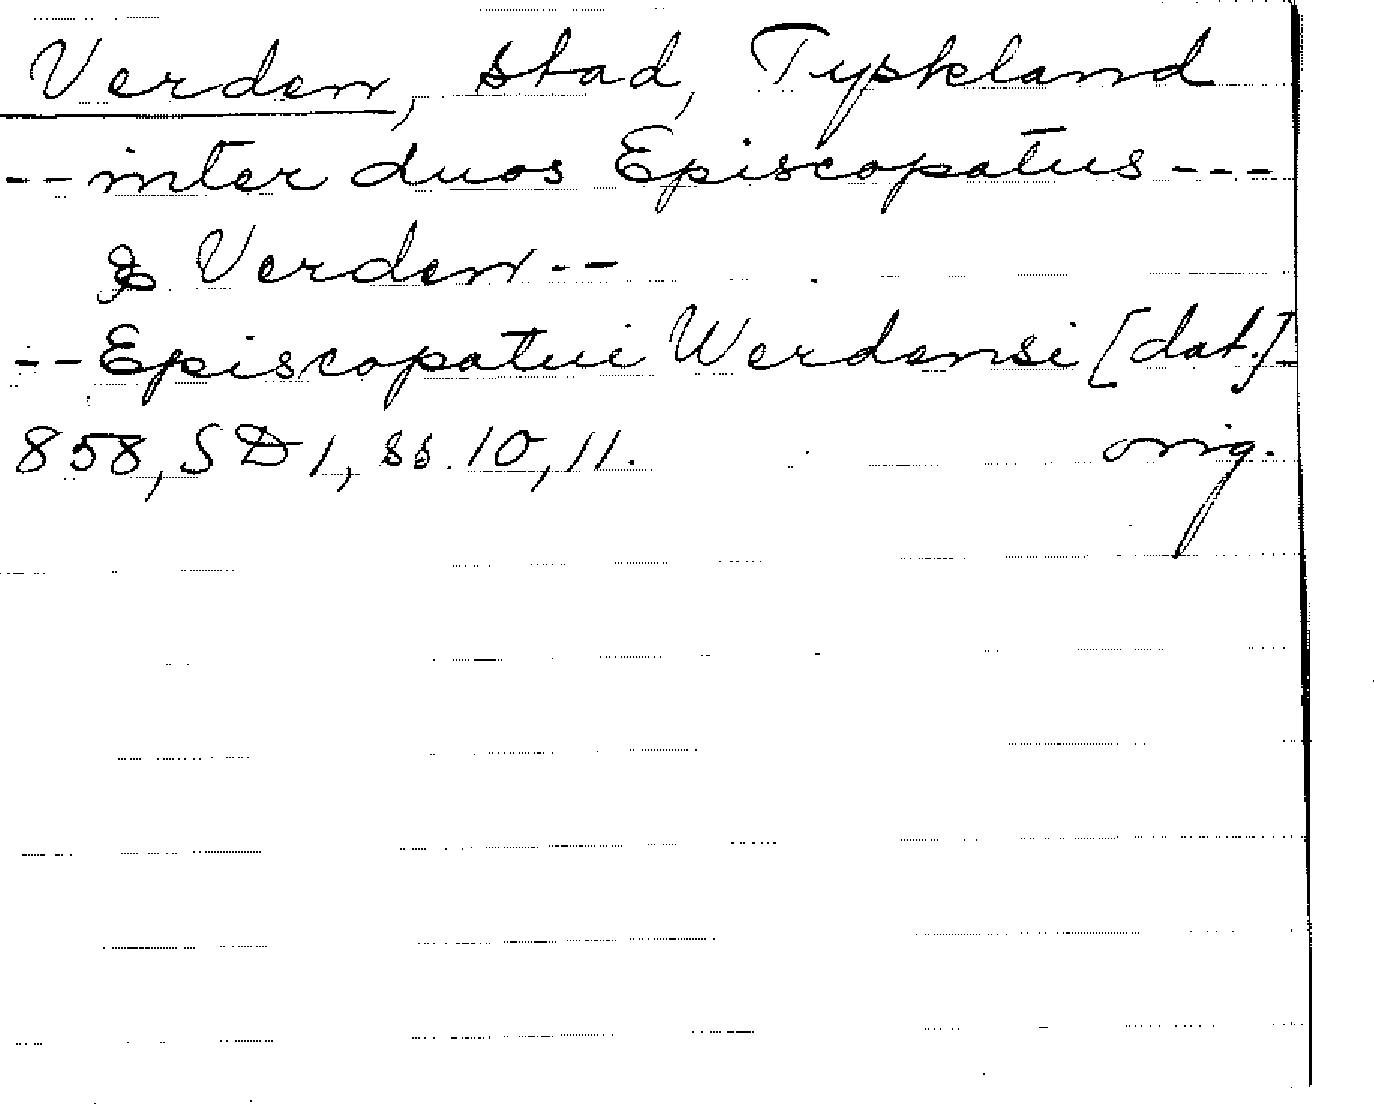 Verden, stad, Tyskland
--inter duos Episcopatus---
& Verden--
--Episcopatui Werdensi [dat.]-
858, SD 1, ss. 10, 11. orig.